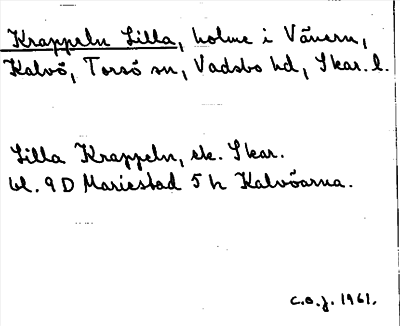 Krappeln Lilla, holme i Vänern,
Kalvö, Torsö sn, Vadsbo hd, Skar. l.
Lilla Krappeln, ek. Skar.
bl. 9 D Mariestad 5 h Kalvöarna.
c.o.j. 1961.